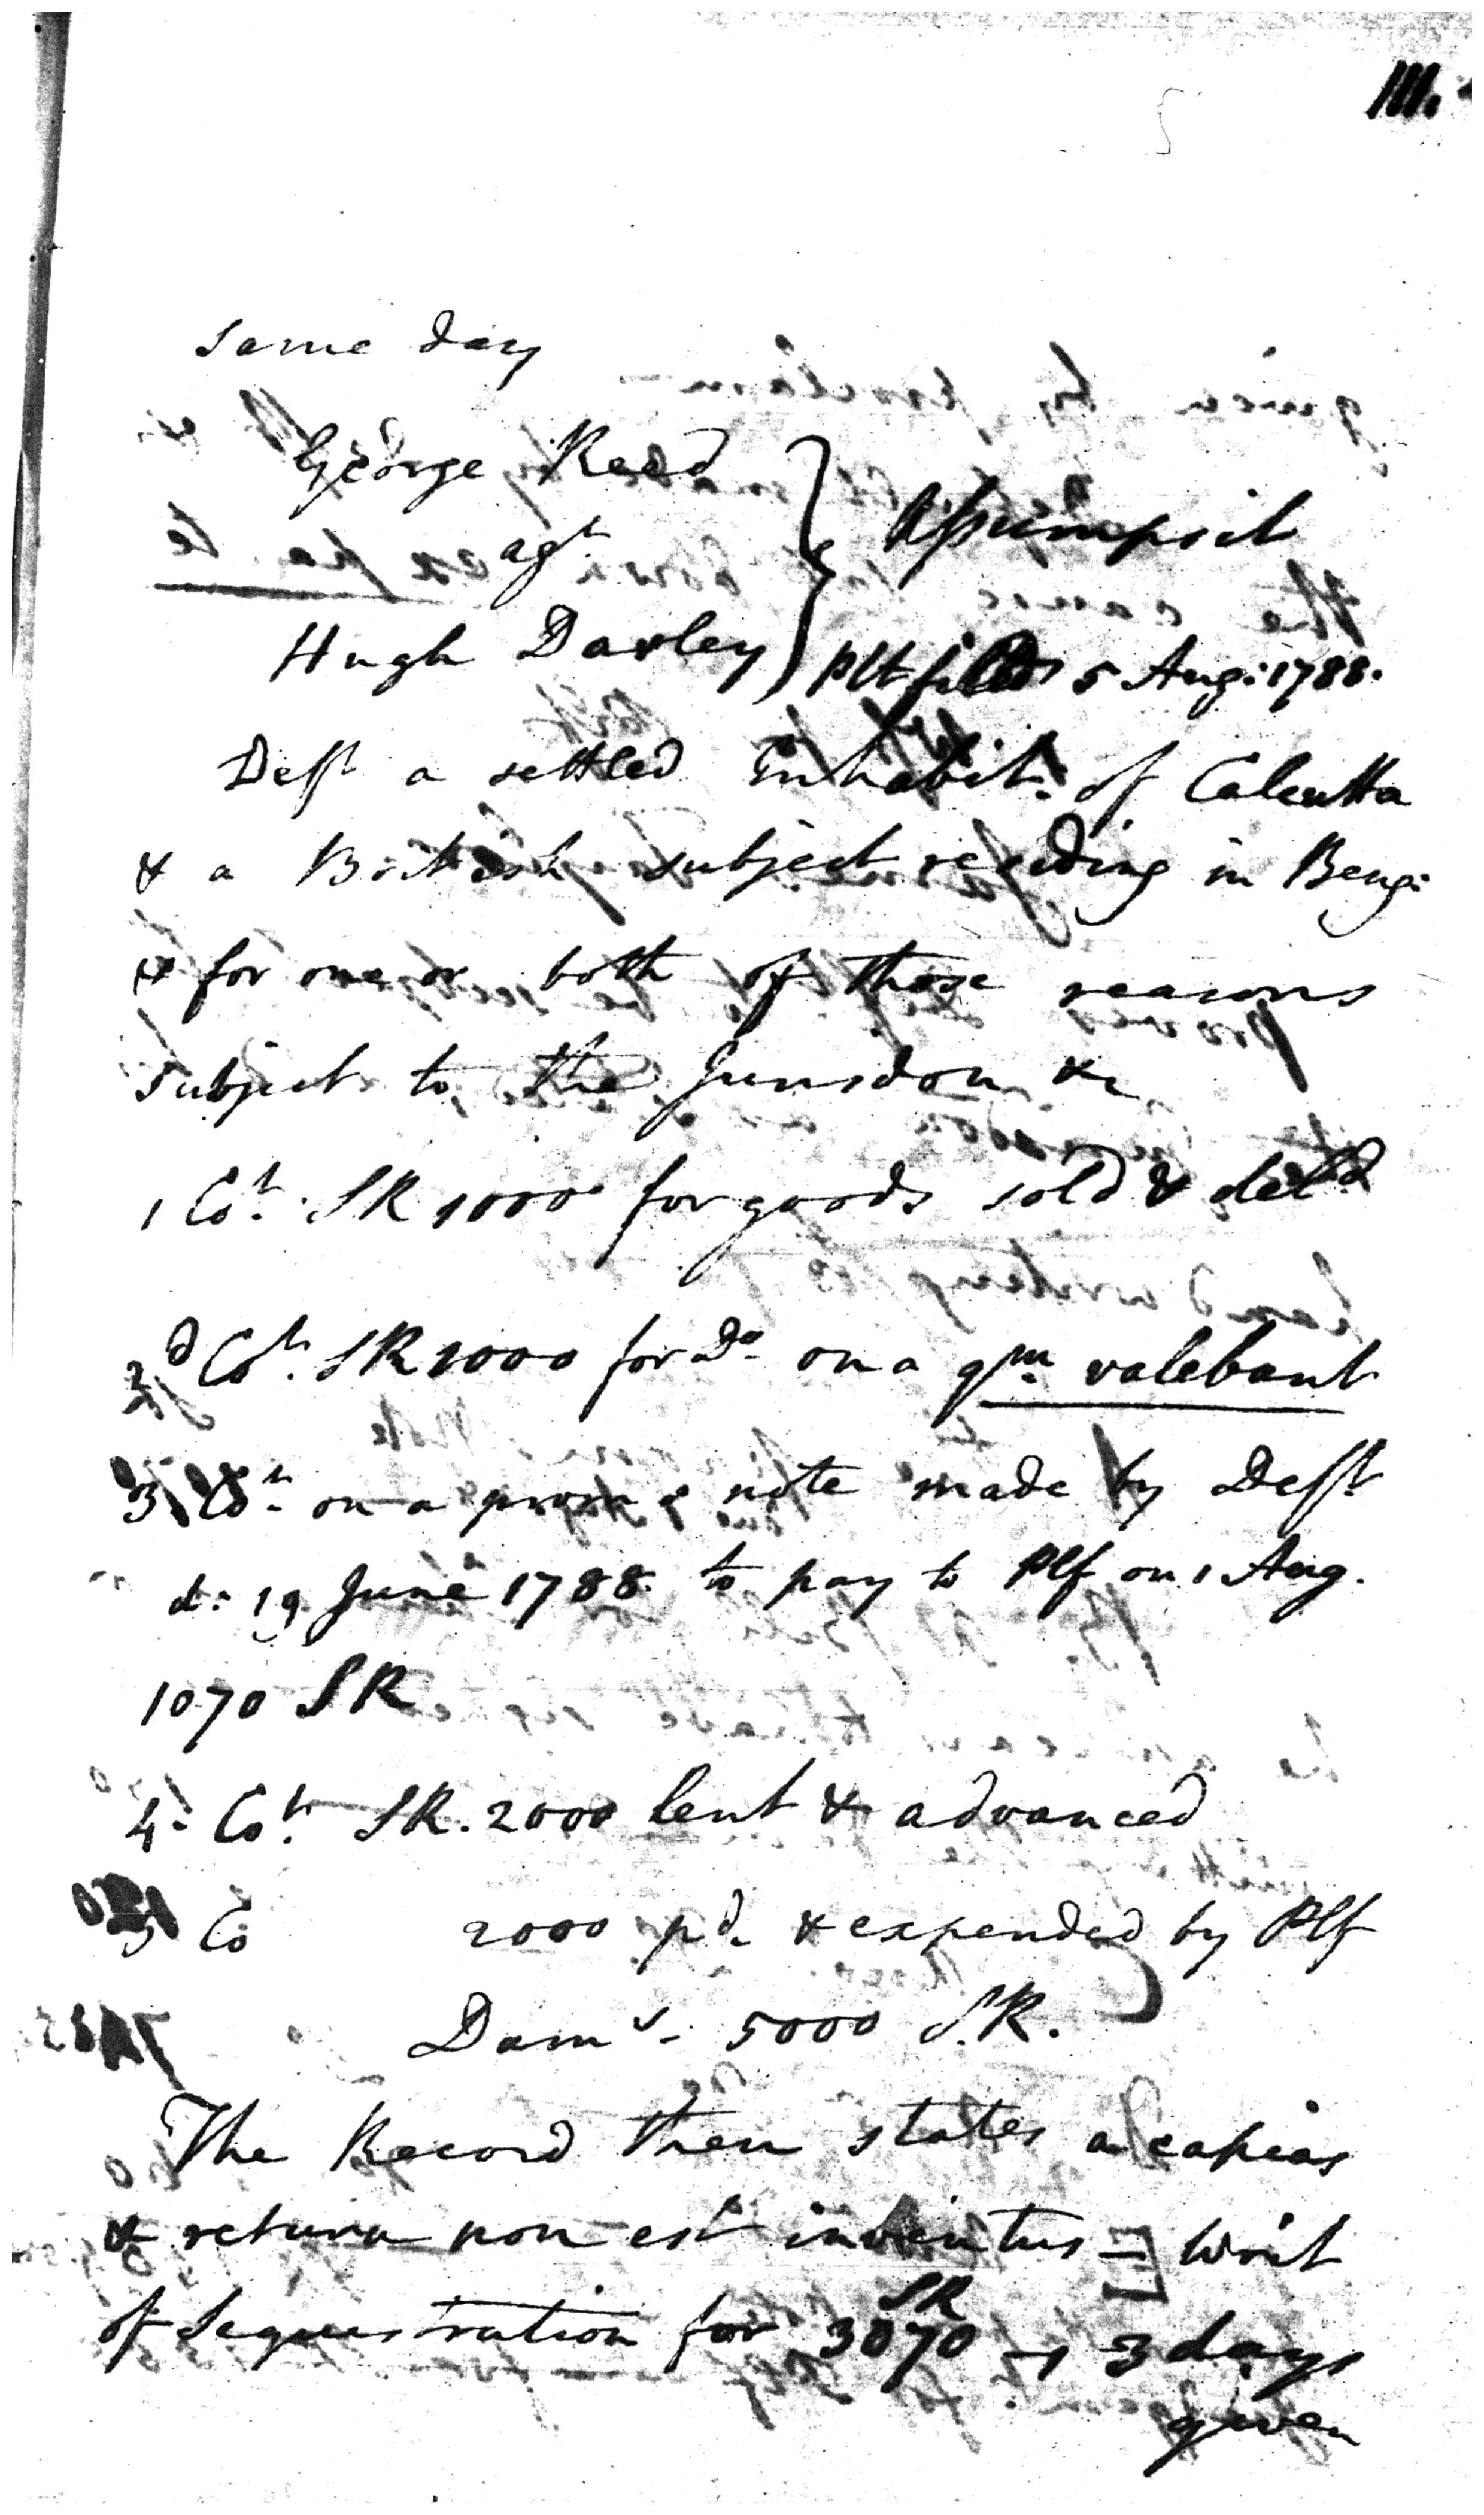 111.
Same day
George Reed
agt
Assumpsit
Hugh Darley
Plt filed 5 Aug: 1788.
Deft a settled Inhabit. of Calcutta
& a British subject residing in Beng:
& for one or both of those reasons
subject to the Jurisdon &c
1 Cot. SR 1000 for goods sold & deld
2d Cot. SR 1000 for Do on a qm valebant
3 Cot. on a promy note made by Deft
d: 19 June 1788 to pay to Plf on 1 Aug.
1070 SR
4 Cot. SR. 2000 lent & advanced
5 Co 2000 pd. & expended by Plf
Dams. 5000 S.R.
The Record then states a capias
& return non est inventus – Writ
of Sequestration for SR 3070 – 3 days
given